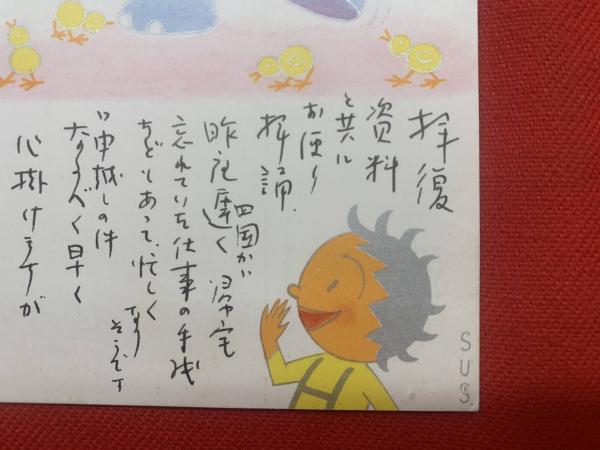 拝復
資料
と共に
お便り
拝誦
昨夜遅く四国から帰宅
忘れていた仕事の
などもあって、忙しく
なりそうです
申越しの件
なるべく早く
心掛けますが
SUS.